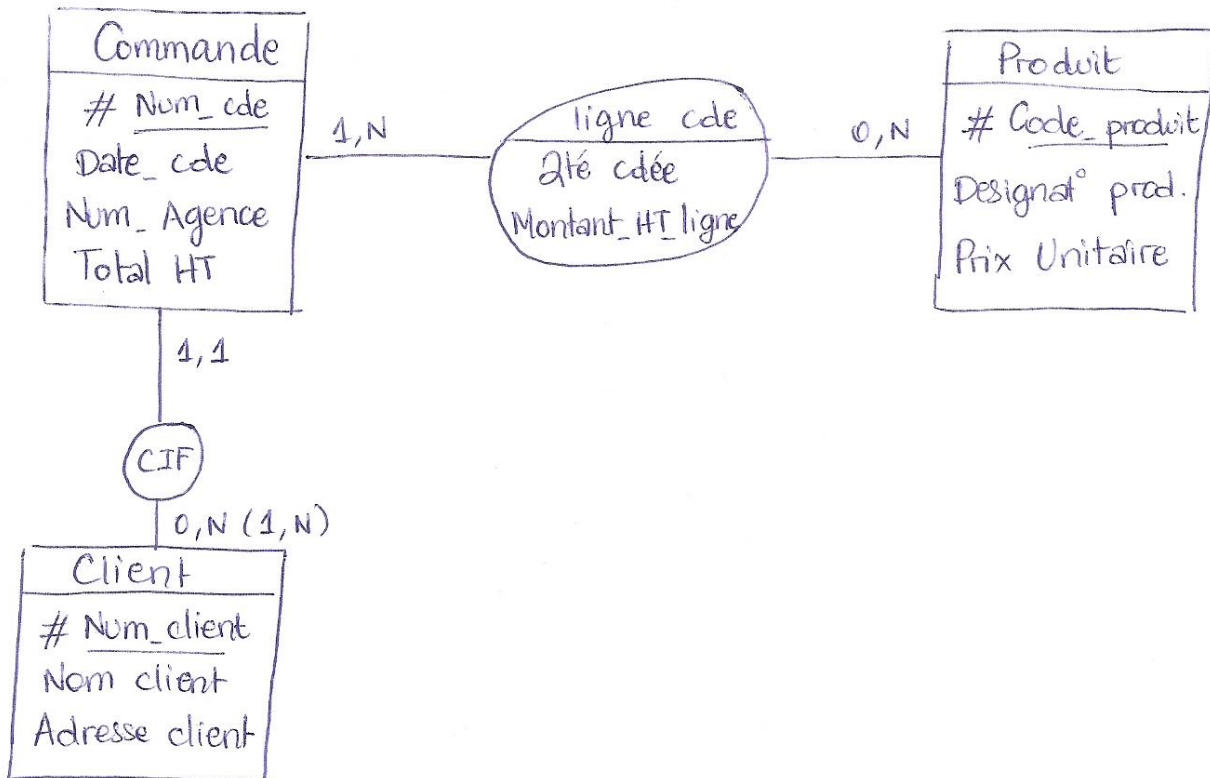 Commande
# Num_cde
Date_cde
Num_Agence
Total HT
1,N
ligne cde
Qté cdée
Montant_HT_ligne
0,N
Produit
# Code_produit
Designat° prod.
Prix Unitaire
1,1
CIF
0,N (1,N)
Client
# Num_client
Nom client
Adresse client